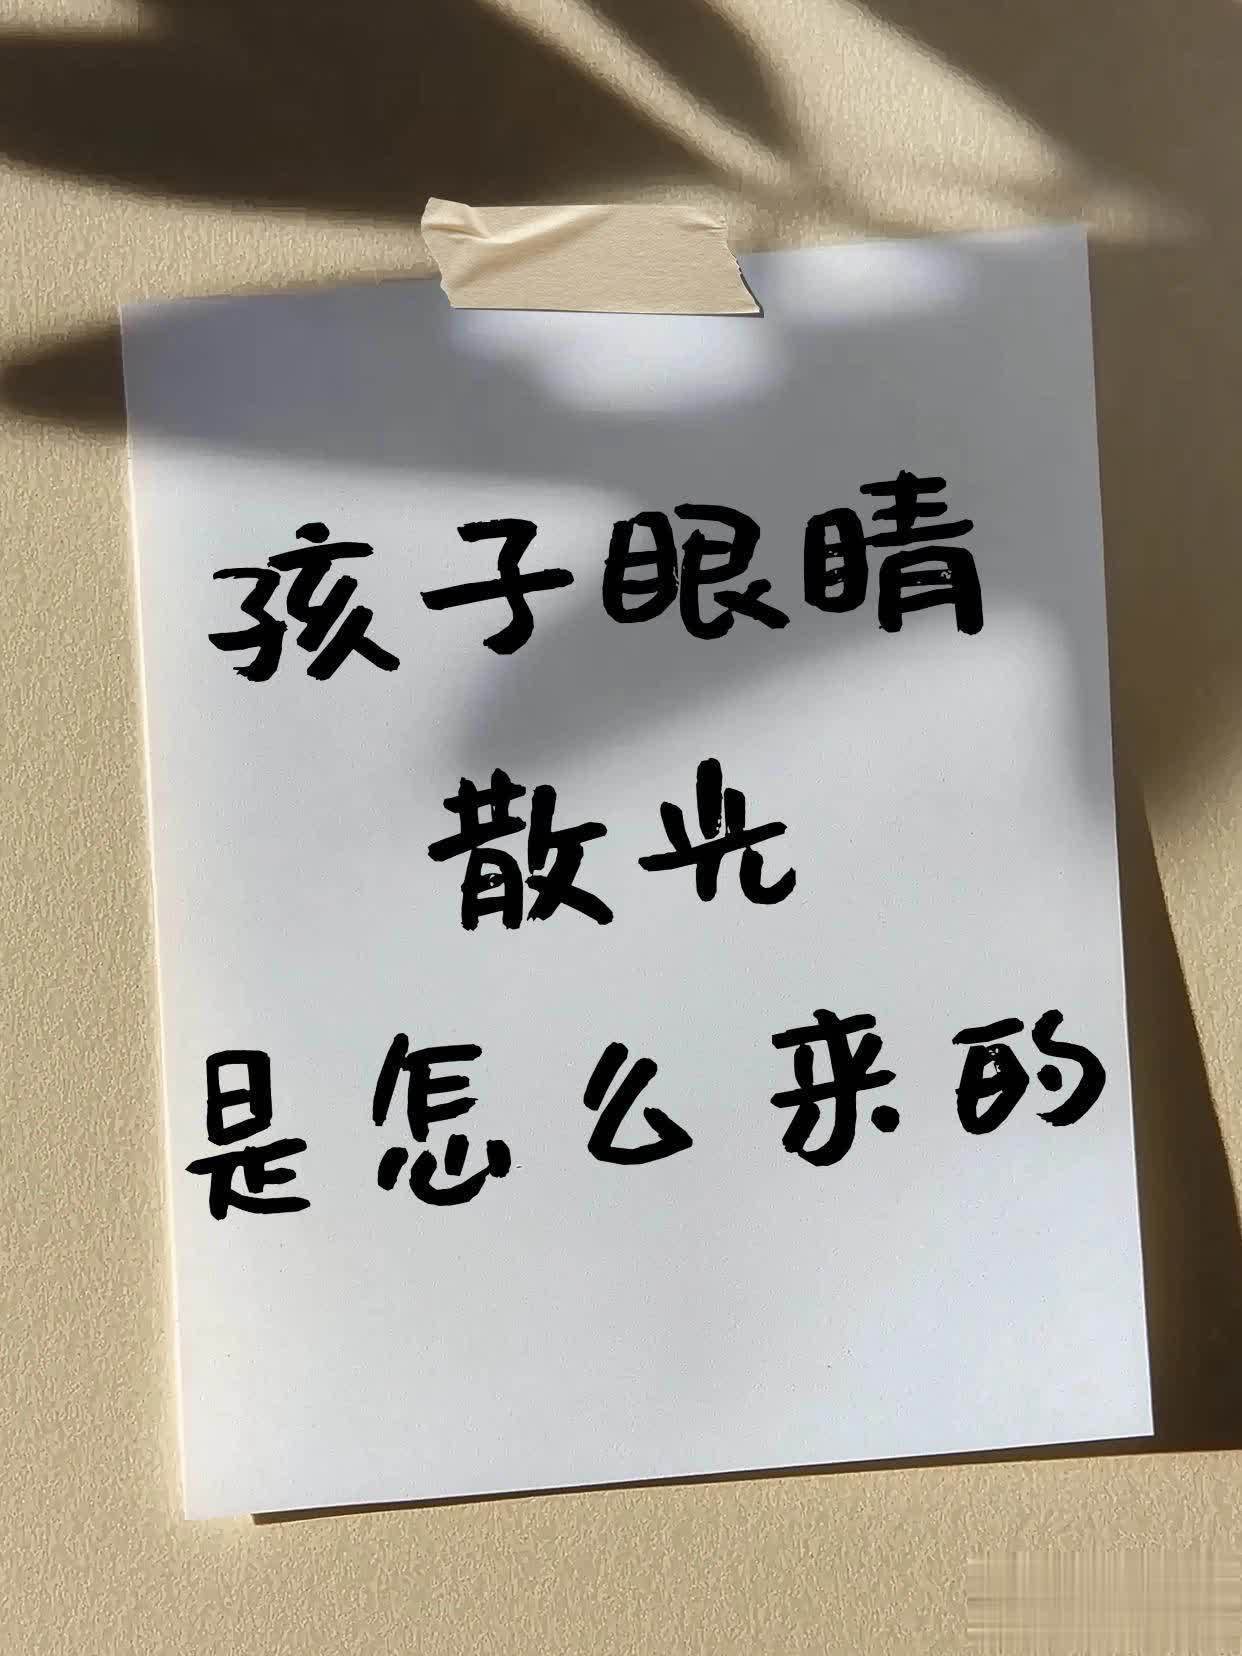 孩子眼睛
散光
是怎么来的